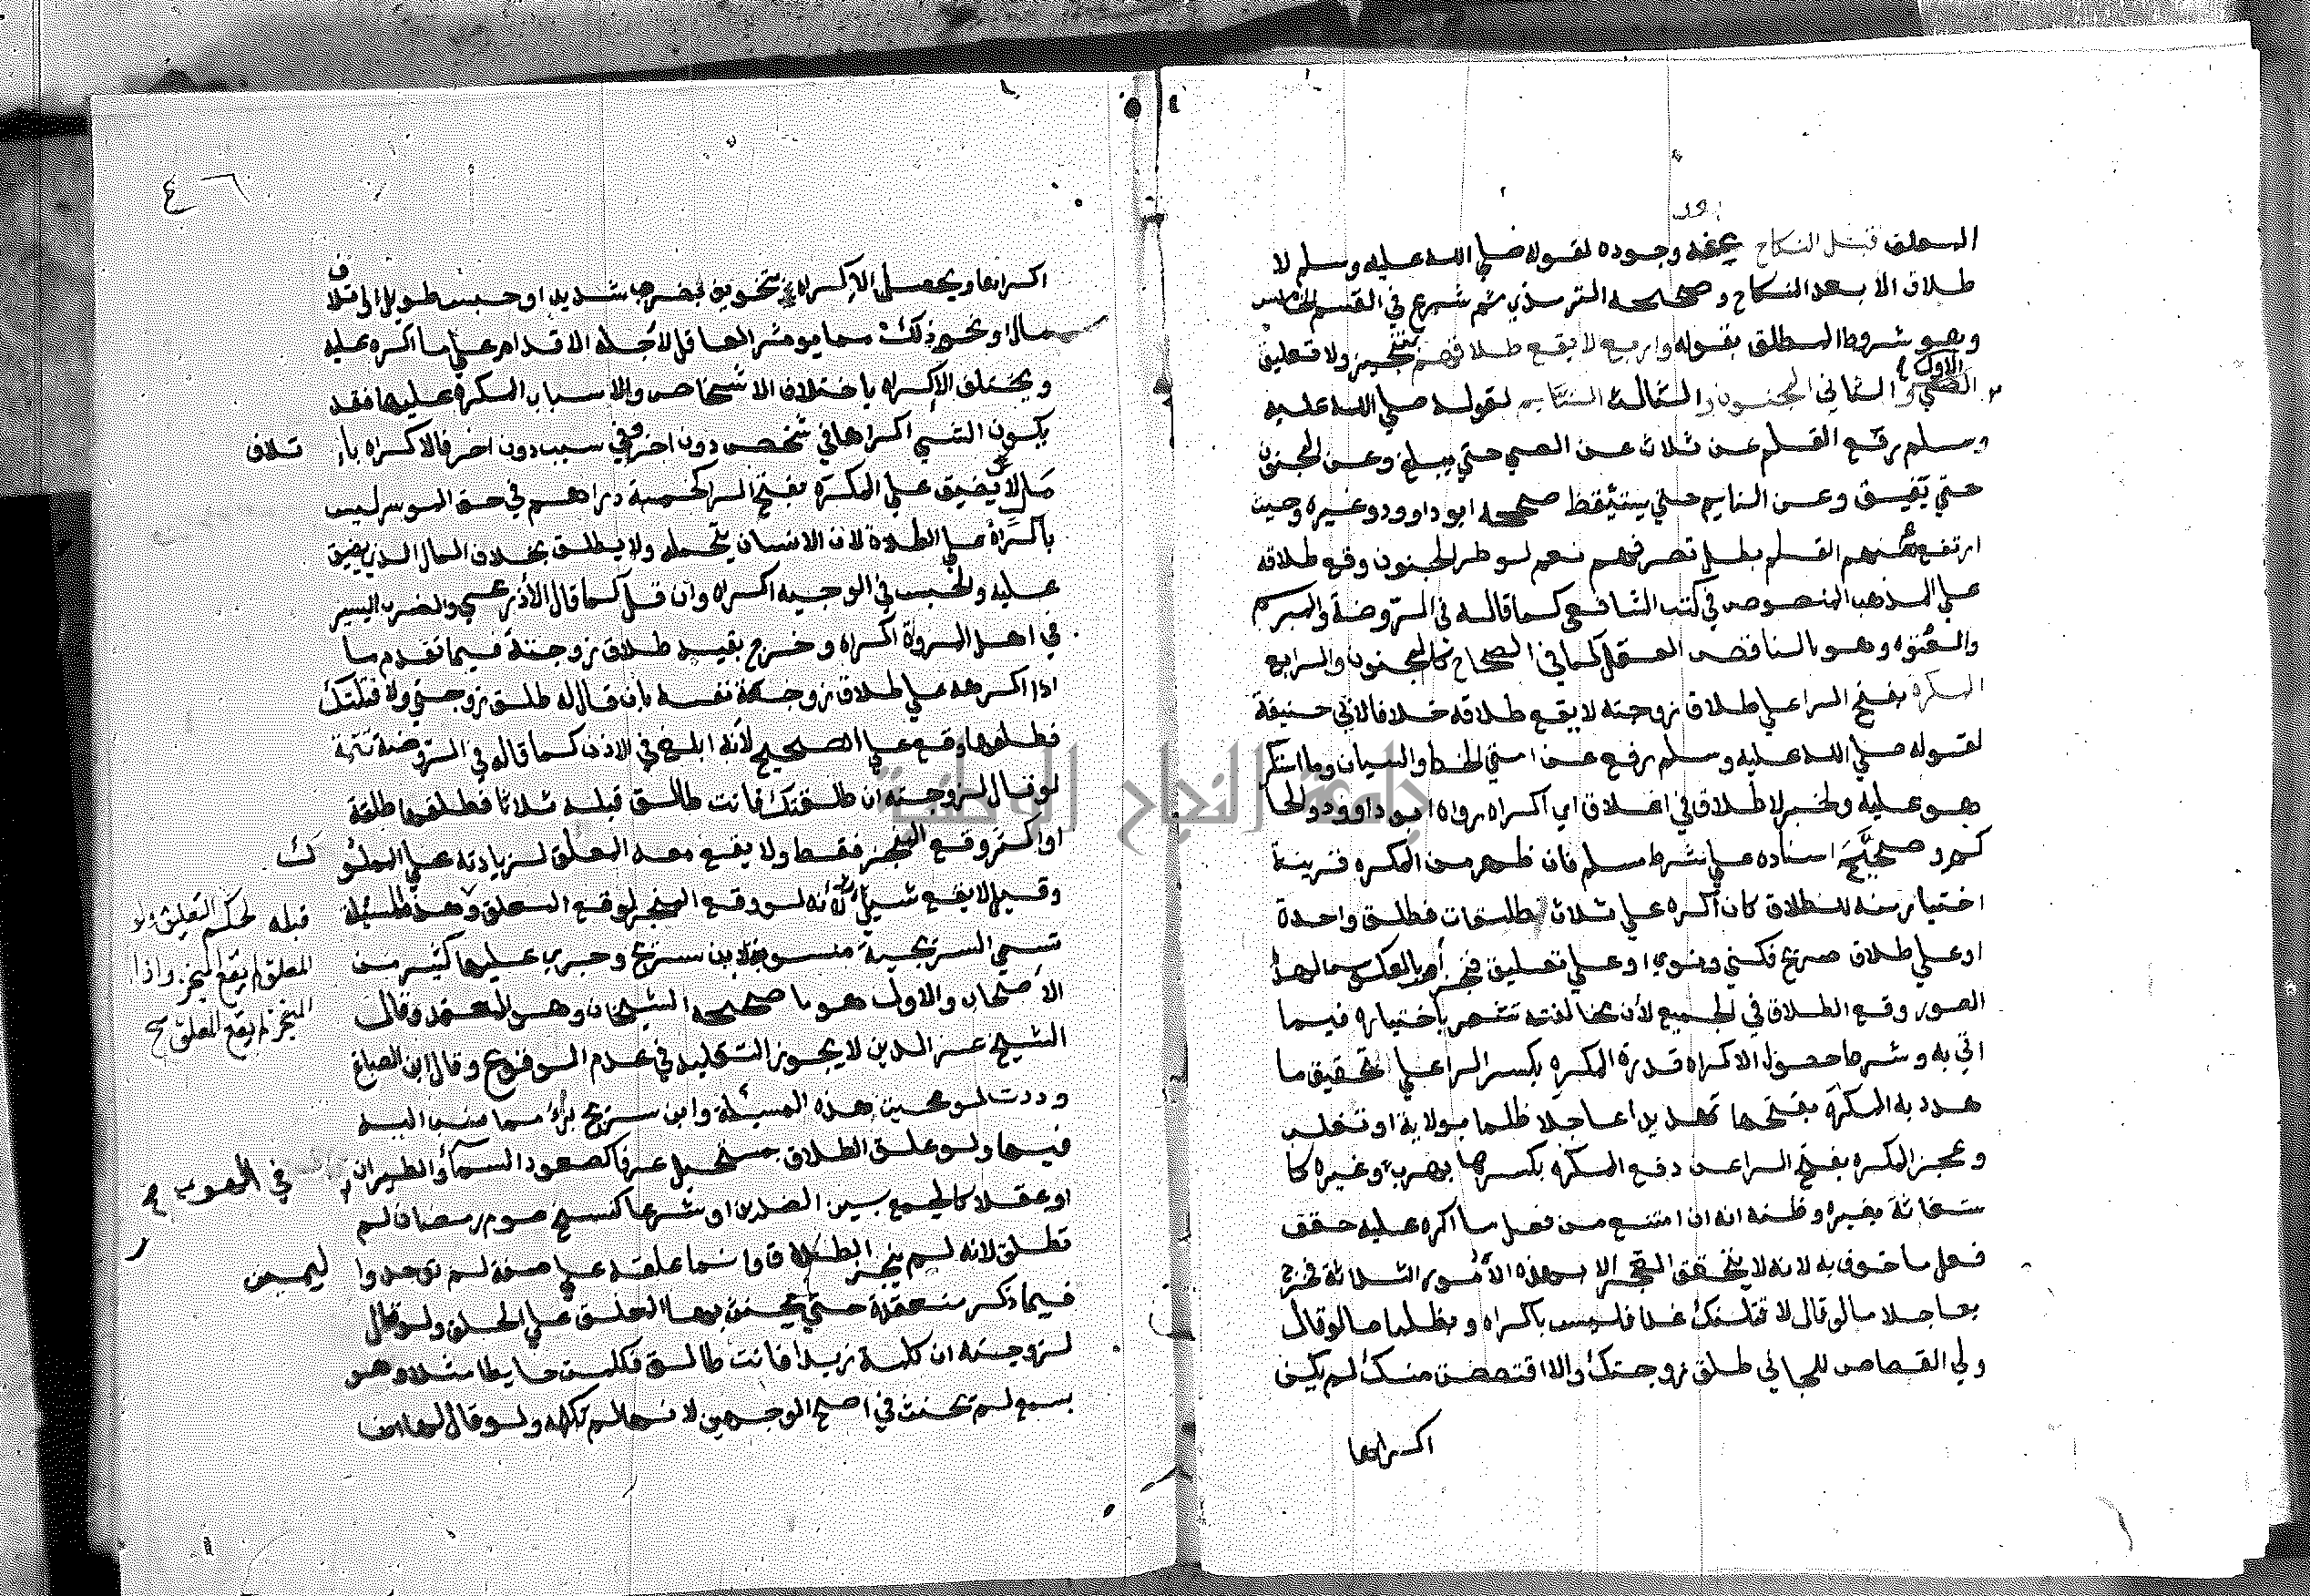 المعلق قبل النكاح بصفة وجوده لقوله صلي الله عليه وسلم لا
طلاق الا بعد النكاح وصححه الترمذي ثم شرع في القسم الخامس
وهو شروط المطلق بقوله واربع لا يقع طلاقهم بتنجيز ولا تعليق
الاول الصبي والثاني المجنون والثالث النايم لقوله صلي الله عليه
وسلم رفع القلم عن ثلاث عن الصبي حتي يبلغ وعن المجنون
حتي يفيق وعن النايم حتي يستيقظ صححه ابو داوود وغيره وحيث
ارتفع عنهم القلم بطل تصرفهم نعم لو طر الجنون وقع طلاقه
علي المذهب المنصوص في كتب الشافعي كما قاله في الروضة والمبرسم
والمعتوه وهو الناقص العقل كما في الصحاح كالمجنون والرابع
المكره بفتح الرا علي طلاق زوجته لا يقع طلاقه خلافا لابي حنيفة
لقوله صلي الله عليه وسلم رفع عن امتي الخطا والنسيان وما استكر
هو عليه ولخبر لا طلاق في اغلاق اي اكراه رواه ابو داوود والحا
كم وصحح اسناده علي شرط مسلم فان ظهر من المكره قرينة
اختيار منه للطلاق كان اكره علي ثلاث تطلقات فطلق واحدة
او علي طلاق صريح فكني ونوي او علي تعليق فنجز او بالعكس لهذه
الصور وقع الطلاق في الجميع لأن مخالفته تشعر باختياره فيما
اتي به وشرط حصول الاكراه قدرة المكره بكسر الرا علي تحقيق ما
هدد به المكره بفتحها تهديدا عاجلا ظلما بولاية او تغلب
وعجز المكره بفتح الرا عن دفع المكره بكسرها بهرب وغيره كا
ستغاثة بغيره وظنه انه ان امتنع من فعل ما اكره عليه حقق
فعل ما خوف به لانه لا يتحقق العجز الا بهذه الأمور الثلاثة فخرج
بعاجلا ما لو قال لا قتلنك غدا فليس باكراه وبظلما ما لو قال
ولي القصاص للجاني طلق زوجتك والا اقتصصت منك لم يكن
اكراها
٤٦
اكراها ويحصل الاكراه بتخويف بضرب شديد او حبس طويل او اتلاف
مال او نحو ذلك مما يوثر العاقل لأجله الاقدام علي ما اكره عليه
ويختلف الاكراه باختلاف الاشخاص والاسباب المكره عليها فقد
يكون الشي اكراها في شخص دون اخر وفي سبب دون اخر فالاكراه با تلاف
مال لا يضيق علي المكره بفتح الرا كخمسة دراهم في حق الموسر ليس
باكراه علي الطلاق لان الانسان يتحمله ولا يطلق بخلاف المال الذي يضيق
عليه والحبس في الوجيه اكراه وان قل كما قال الأذرعي والضرب اليسير
في اهل المروة اكراه وخرج بقيد طلاق زوجته فيما تقدم ما
اذا اكرهه علي طلاق زوجة نفسه بان قال له طلق زوجتي ولا قتلتك
فطلقها وقع علي الصحيح لأنه ابلغ في الاذن كما قاله في الروضة تتمة
لو قال لزوجته ان طلقتك فانت طالق قبله ثلاثا فطلقها طلقة
او اكثر وقع المنجز فقط ولا يقع معه المعلق لزيادته علي المملوك
وقيل لا يقع شي لأنه لو وقع المنجز لوقع المعلق قبله لحكم التعليق ولو
المعلق لم يقع المنجز واذا
المنجز لم يقع المعلق صح
وهذه المسئلة
تسمي السريجية منسوبة لابن سريج وجري عليها كثير من
الأصحاب والاول هو ما صححه الشيخان وهو المعتمد وقال
الشيخ عز الدين لا يجوز التقليد في عدم الوقوع وقال ابن الصباغ
وددت لو محيت هذه المسئلة وابن سريج بريء مما نسب اليه
فيها ولو علق الطلاق بمستحيل عرفا كصعود السما والطيران
او عقلا كالجمع بين الضدين او شرعا كنسخ صوم رمضان لم
تطلق لانه لم ينجز الطلاق وانما علقه علي صفة لم توجد وا ليمين
فيما ذكر منعقدة حتي يحنث بها المعلق علي الحلف ولو قال
لزوجته ان كلمت زيدا فانت طالق فكلمت حايطا مثلا وهو
يسمع لم تحنث في اصح الوجهين لا نها لم تكلمه ولو قال لها ان